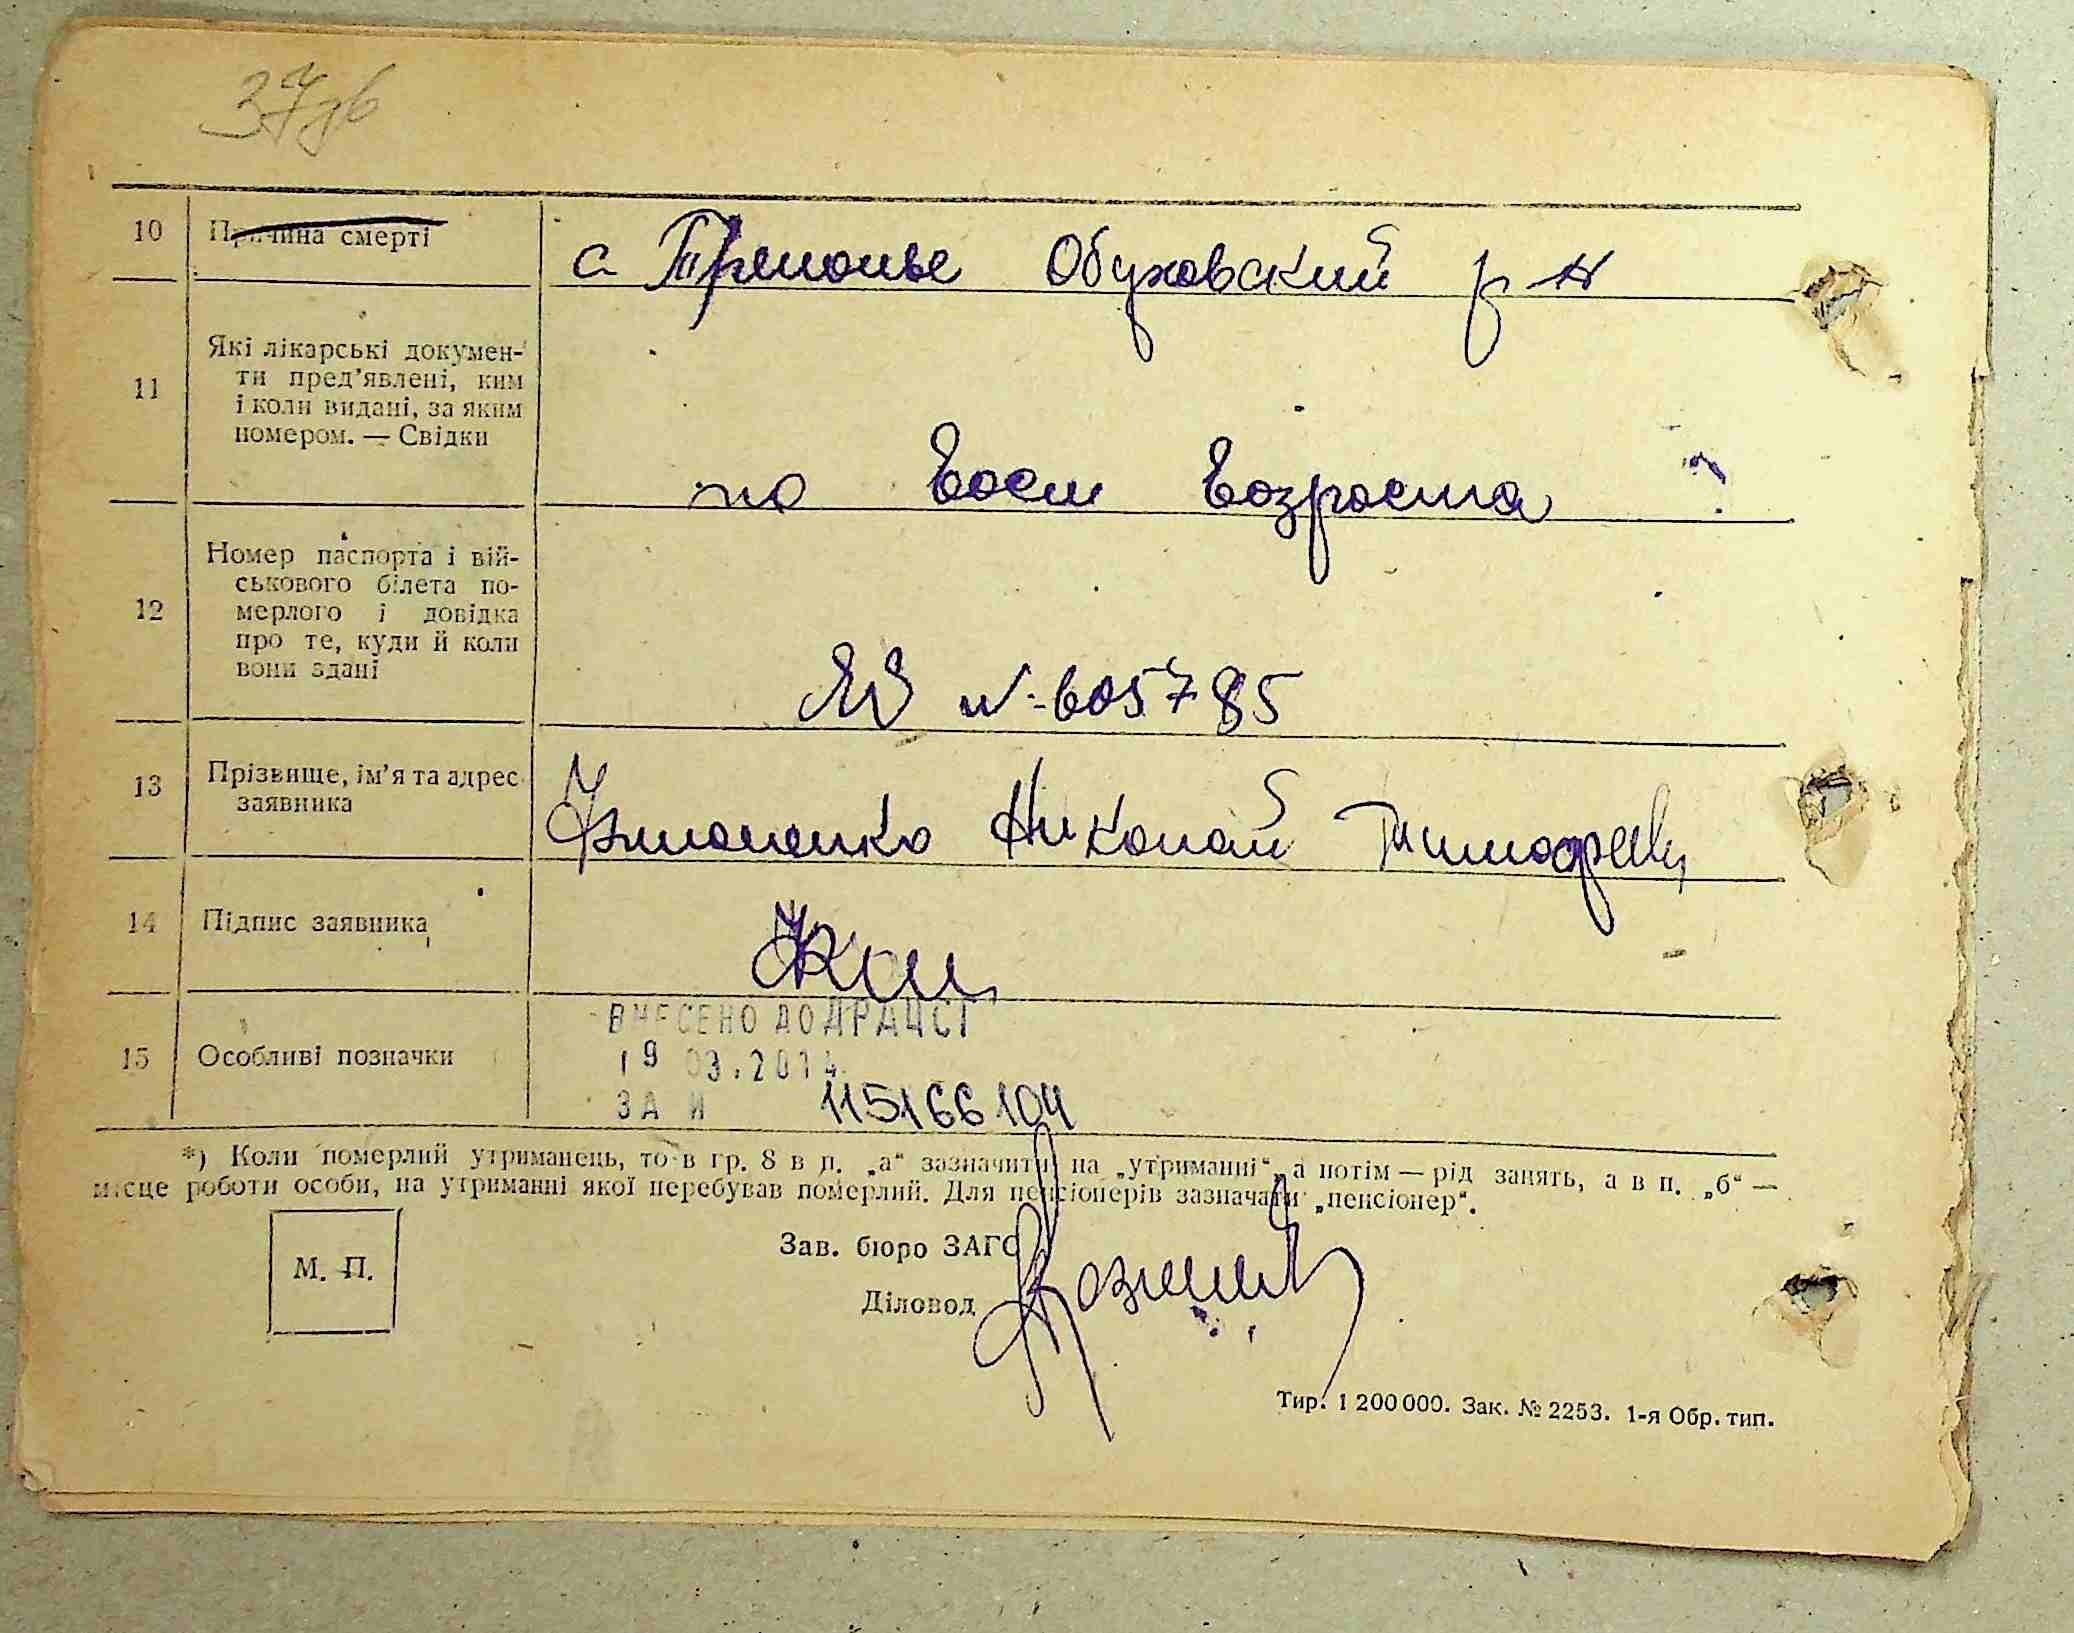 37зв
10 Причина смерті с Триполье Обуховский р н
11 Які лікарські докумен-
ти пред'явлені, ким
і коли видані, за яким
номером. — Свідки
по восст возраста
12 Номер паспорта і вій-
ськового білета по-
мерлого і довідка
про те, куди й коли
вони здані
№-605785
13 Прізвище, ім'я та адрес
заявника
Николай Тимофеевич
14 Підпис заявника
ВНЕСЕНО ДО ДРАЦСГ
15 Особливі позначки
19 03.2014
ЗА № 115166104
*) Коли померлий утриманець, то в гр. 8 в п. „а“ зазначити на „утриманні“, а потім — рід занять, а в п. „б“ —
місце роботи особи, на утриманні якої перебував померлий. Для пенсіонерів зазначати „пенсіонер“.
М. П.
Зав. бюро ЗАГС
Діловод
Тир. 1 200 000. Зак. № 2253. 1-я Обр. тип.